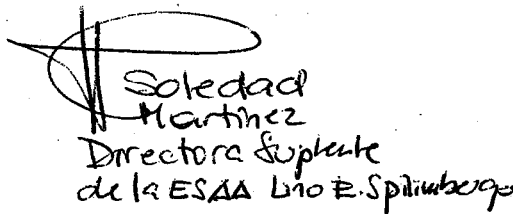 Soledad
Martinez
Directora Suplente
de la ESAA Lino E. Spilimbergo